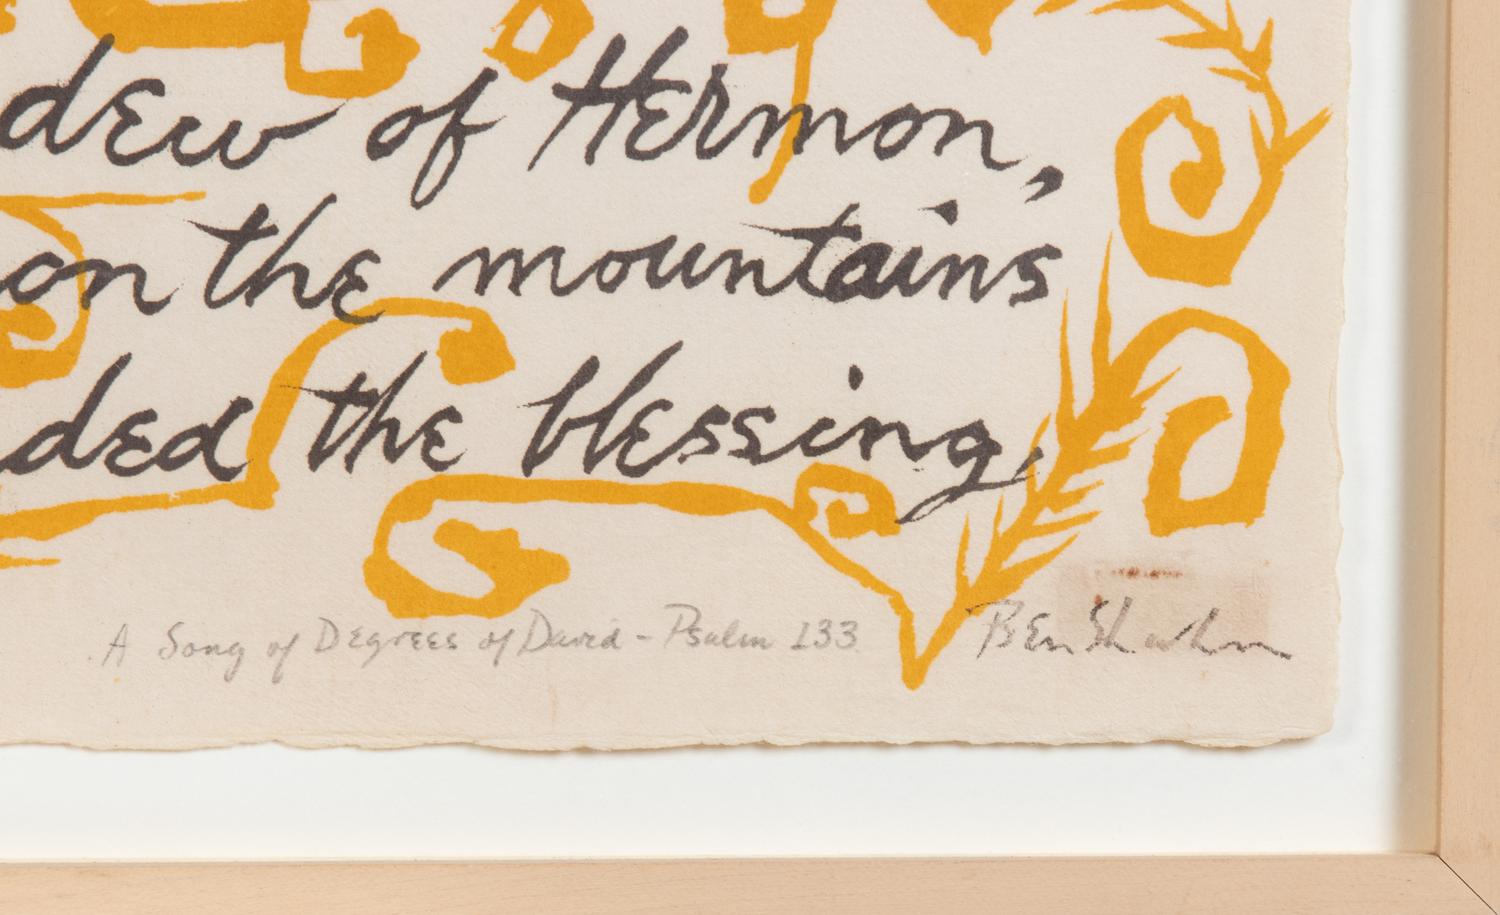 dew of Hermon,
on the mountains
ded the blessing,
A Song of Degrees of David - Psalm 133
Ben Shahn